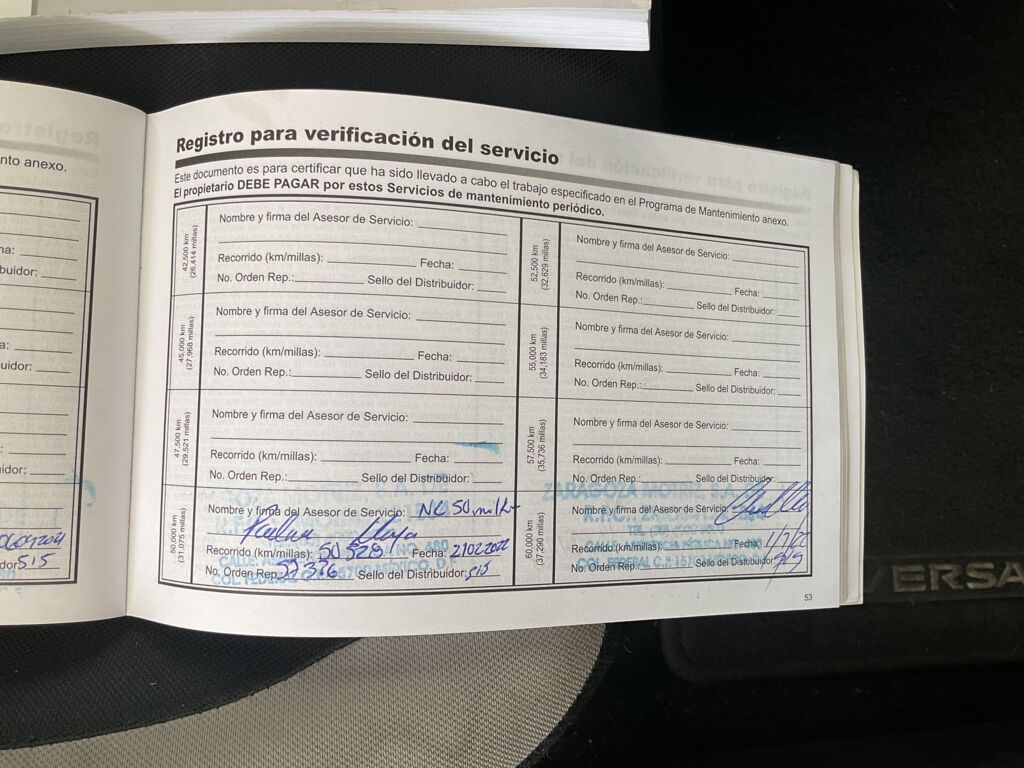 nto anexo.
ha:
buidor:
a:
uidor:
idor:
dor 515
Registro para verificación del servicio
Este documento es para certificar que ha sido llevado a cabo el trabajo especificado en el Programa de Mantenimiento anexo.
El propietario DEBE PAGAR por estos Servicios de mantenimiento periódico.
42,500 km
(26,414 millas)
Nombre y firma del Asesor de Servicio:
Recorrido (km/millas): Fecha:
No. Orden Rep.: Sello del Distribuidor:
45,000 km
(27,968 millas)
Nombre y firma del Asesor de Servicio:
Recorrido (km/millas): Fecha:
No. Orden Rep.: Sello del Distribuidor:
47,500 km
(29,521 millas)
Nombre y firma del Asesor de Servicio:
Recorrido (km/millas): Fecha:
No. Orden Rep.: Sello del Distribuidor:
50,000 km
(31,075 millas)
Nombre y firma del Asesor de Servicio:
Recorrido (km/millas): 50 528 Fecha: 21022022
No. Orden Rep.: 57376 Sello del Distribuidor: 515
52,500 km
(32,629 millas)
Nombre y firma del Asesor de Servicio:
Recorrido (km/millas): Fecha:
No. Orden Rep.: Sello del Distribuidor:
55,000 km
(34,183 millas)
Nombre y firma del Asesor de Servicio:
Recorrido (km/millas): Fecha:
No. Orden Rep.: Sello del Distribuidor:
57,500 km
(35,736 millas)
Nombre y firma del Asesor de Servicio:
Recorrido (km/millas): Fecha:
No. Orden Rep.: Sello del Distribuidor:
ZARAGOZA MOTRIZ, S.A.
60,000 km
(37,290 millas)
Nombre y firma del Asesor de Servicio:
Recorrido (km/millas): Fecha:
No. Orden Rep.: Sello del Distribuidor:
53
VERSA